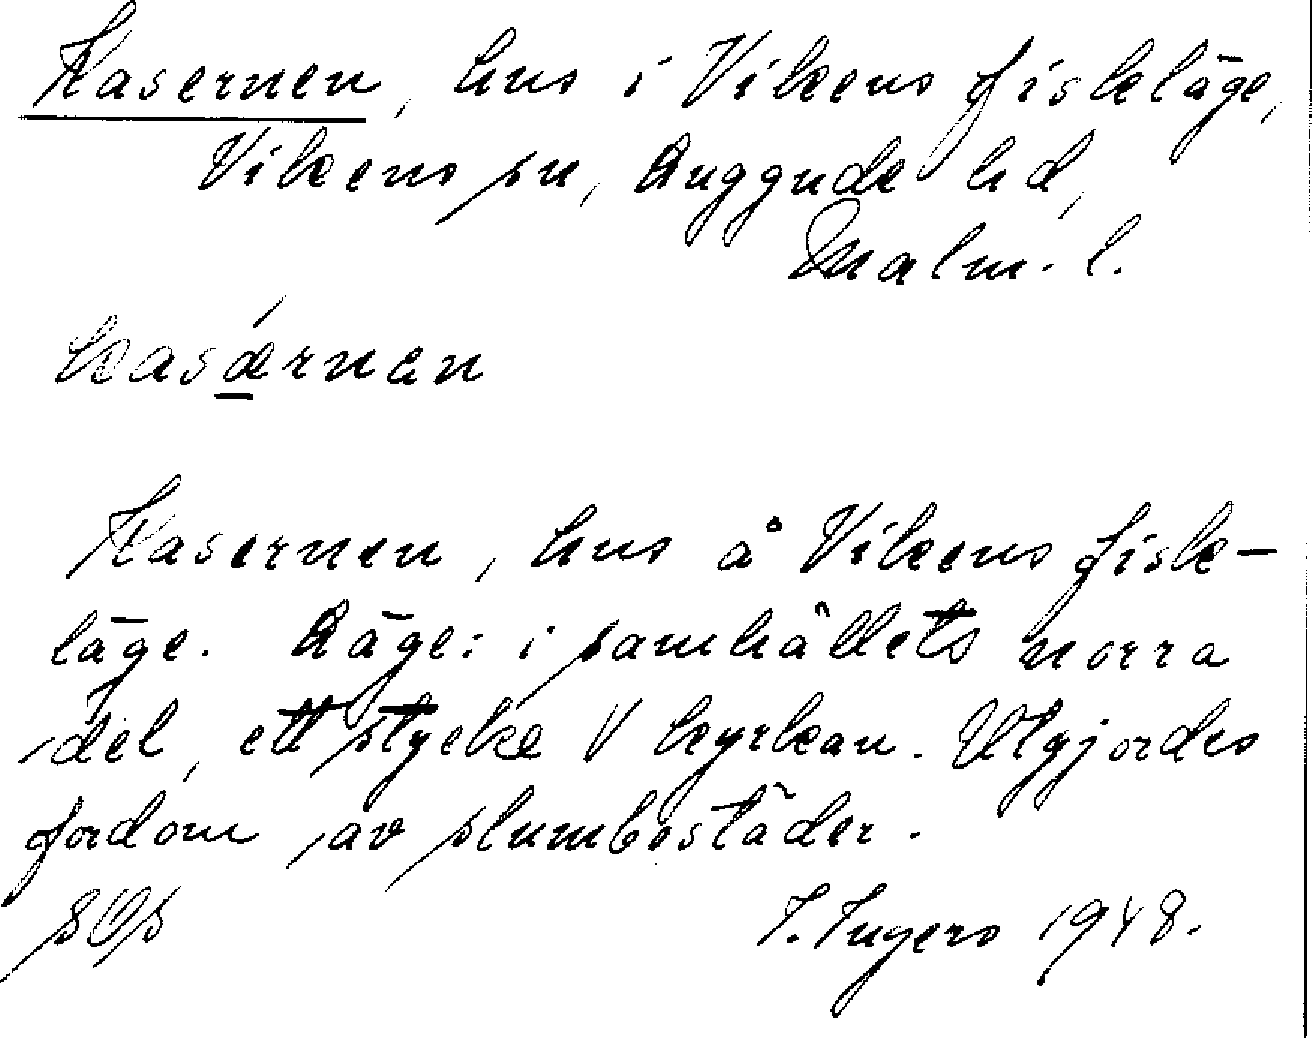 Kasernen, hus i Vikens fiskeläge,
Vikens sn, Luggude hd,
Malm. l.
kasǽrnen
Kasernen, hus å Vikens fisk-
läge. Läge: i samhällets norra
del, ett stycke V kyrkan. Utgjordes
fordom av slumbostäder.
I. Ingers 1948.